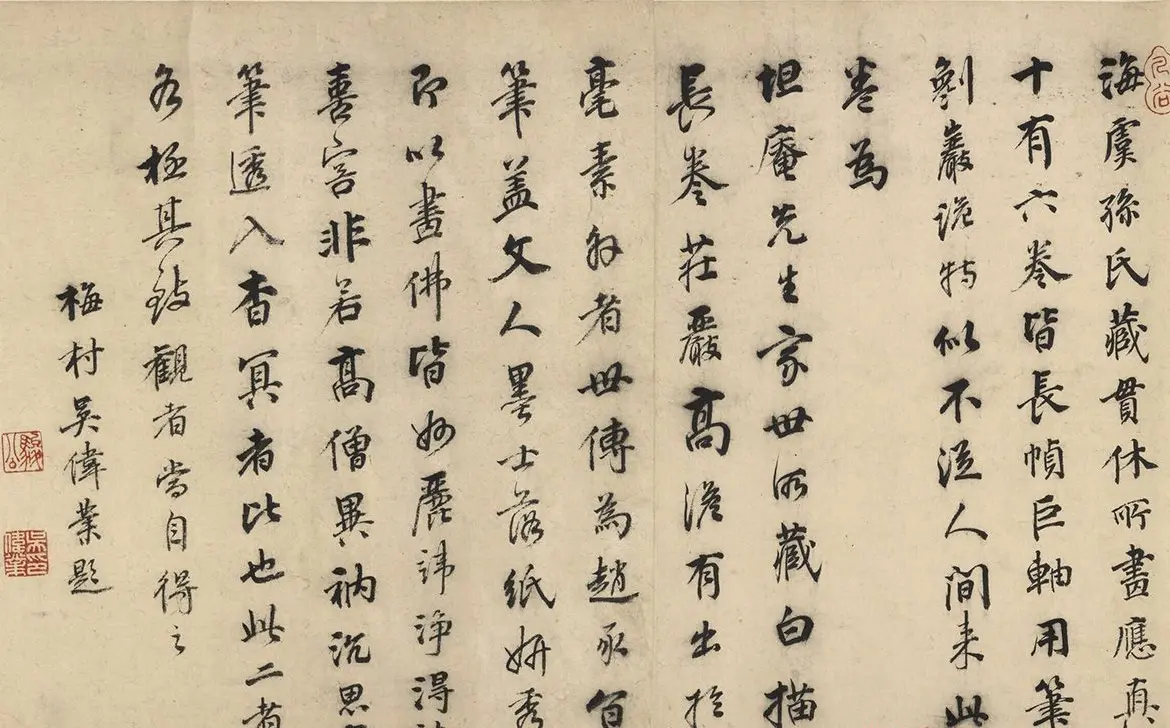 海虞孫氏藏貫休所畫應真
十有六卷皆長幀巨軸用筆
巖詭特似不從人間来此
卷為
坦庵先生家世所藏白描
長卷莊嚴高澹有出於
毫素外者世傳為趙承旨
筆盖文人墨士落紙妍秀
即以畫佛皆妙麗淨得
喜容非若高僧異衲沉思
筆透入杳冥者比也此二者
各極其致觀者當自得之
梅村吳偉業題
駿公
吳偉業印